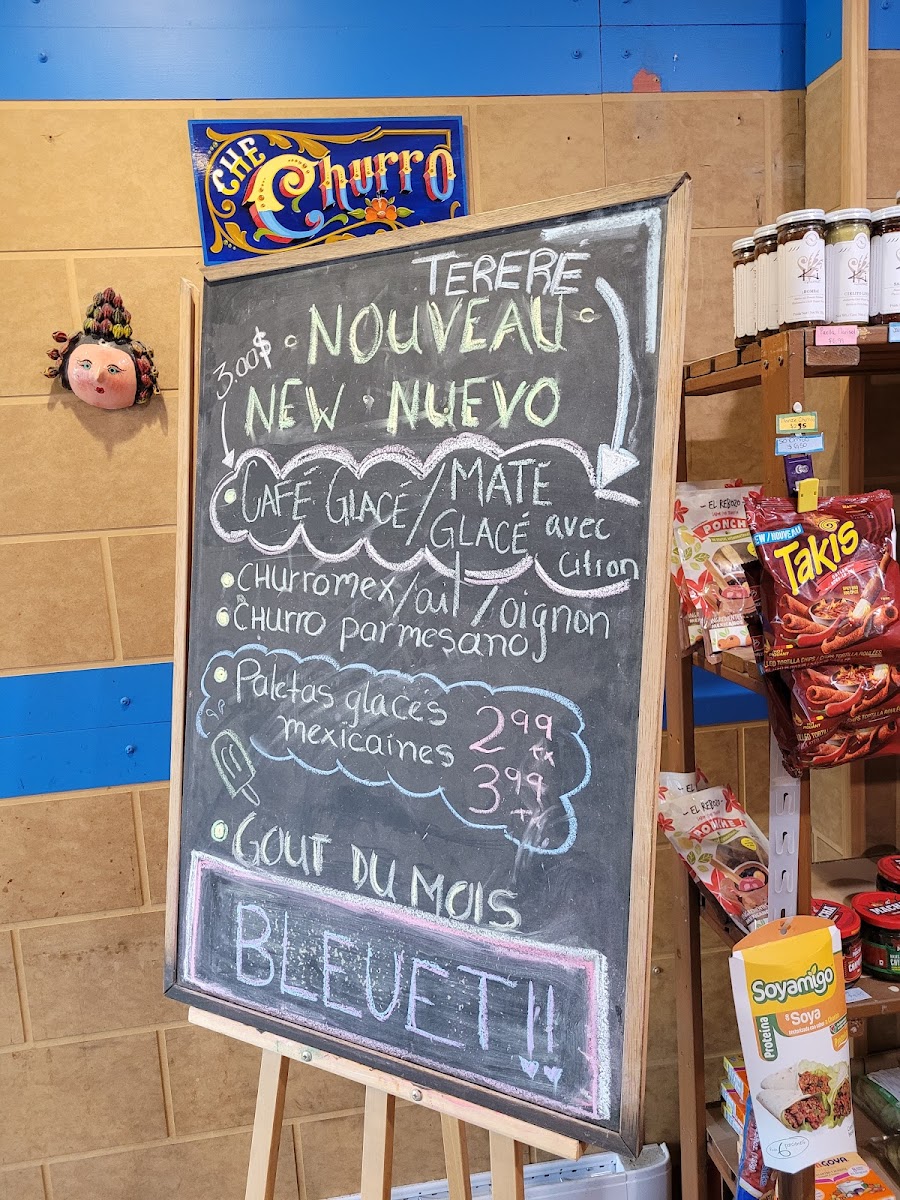 CHE Churro
TERERÉ
3.00$
NOUVEAU
NEW NUEVO
CAFÉ GLACÉ/MATE GLACÉ avec citron
CHURROMEX/ail/oignon
CHURRO parmesano
Paletas glacés 2.99 tx
mexicaines 3.99
GOUT DU MOIS
BLEUET!!
EL REBOZO
PONCHE
NEW/NOUVEAU
Takis
EL REBOZO
Soyamigo
Proteína
Soya
GOYA